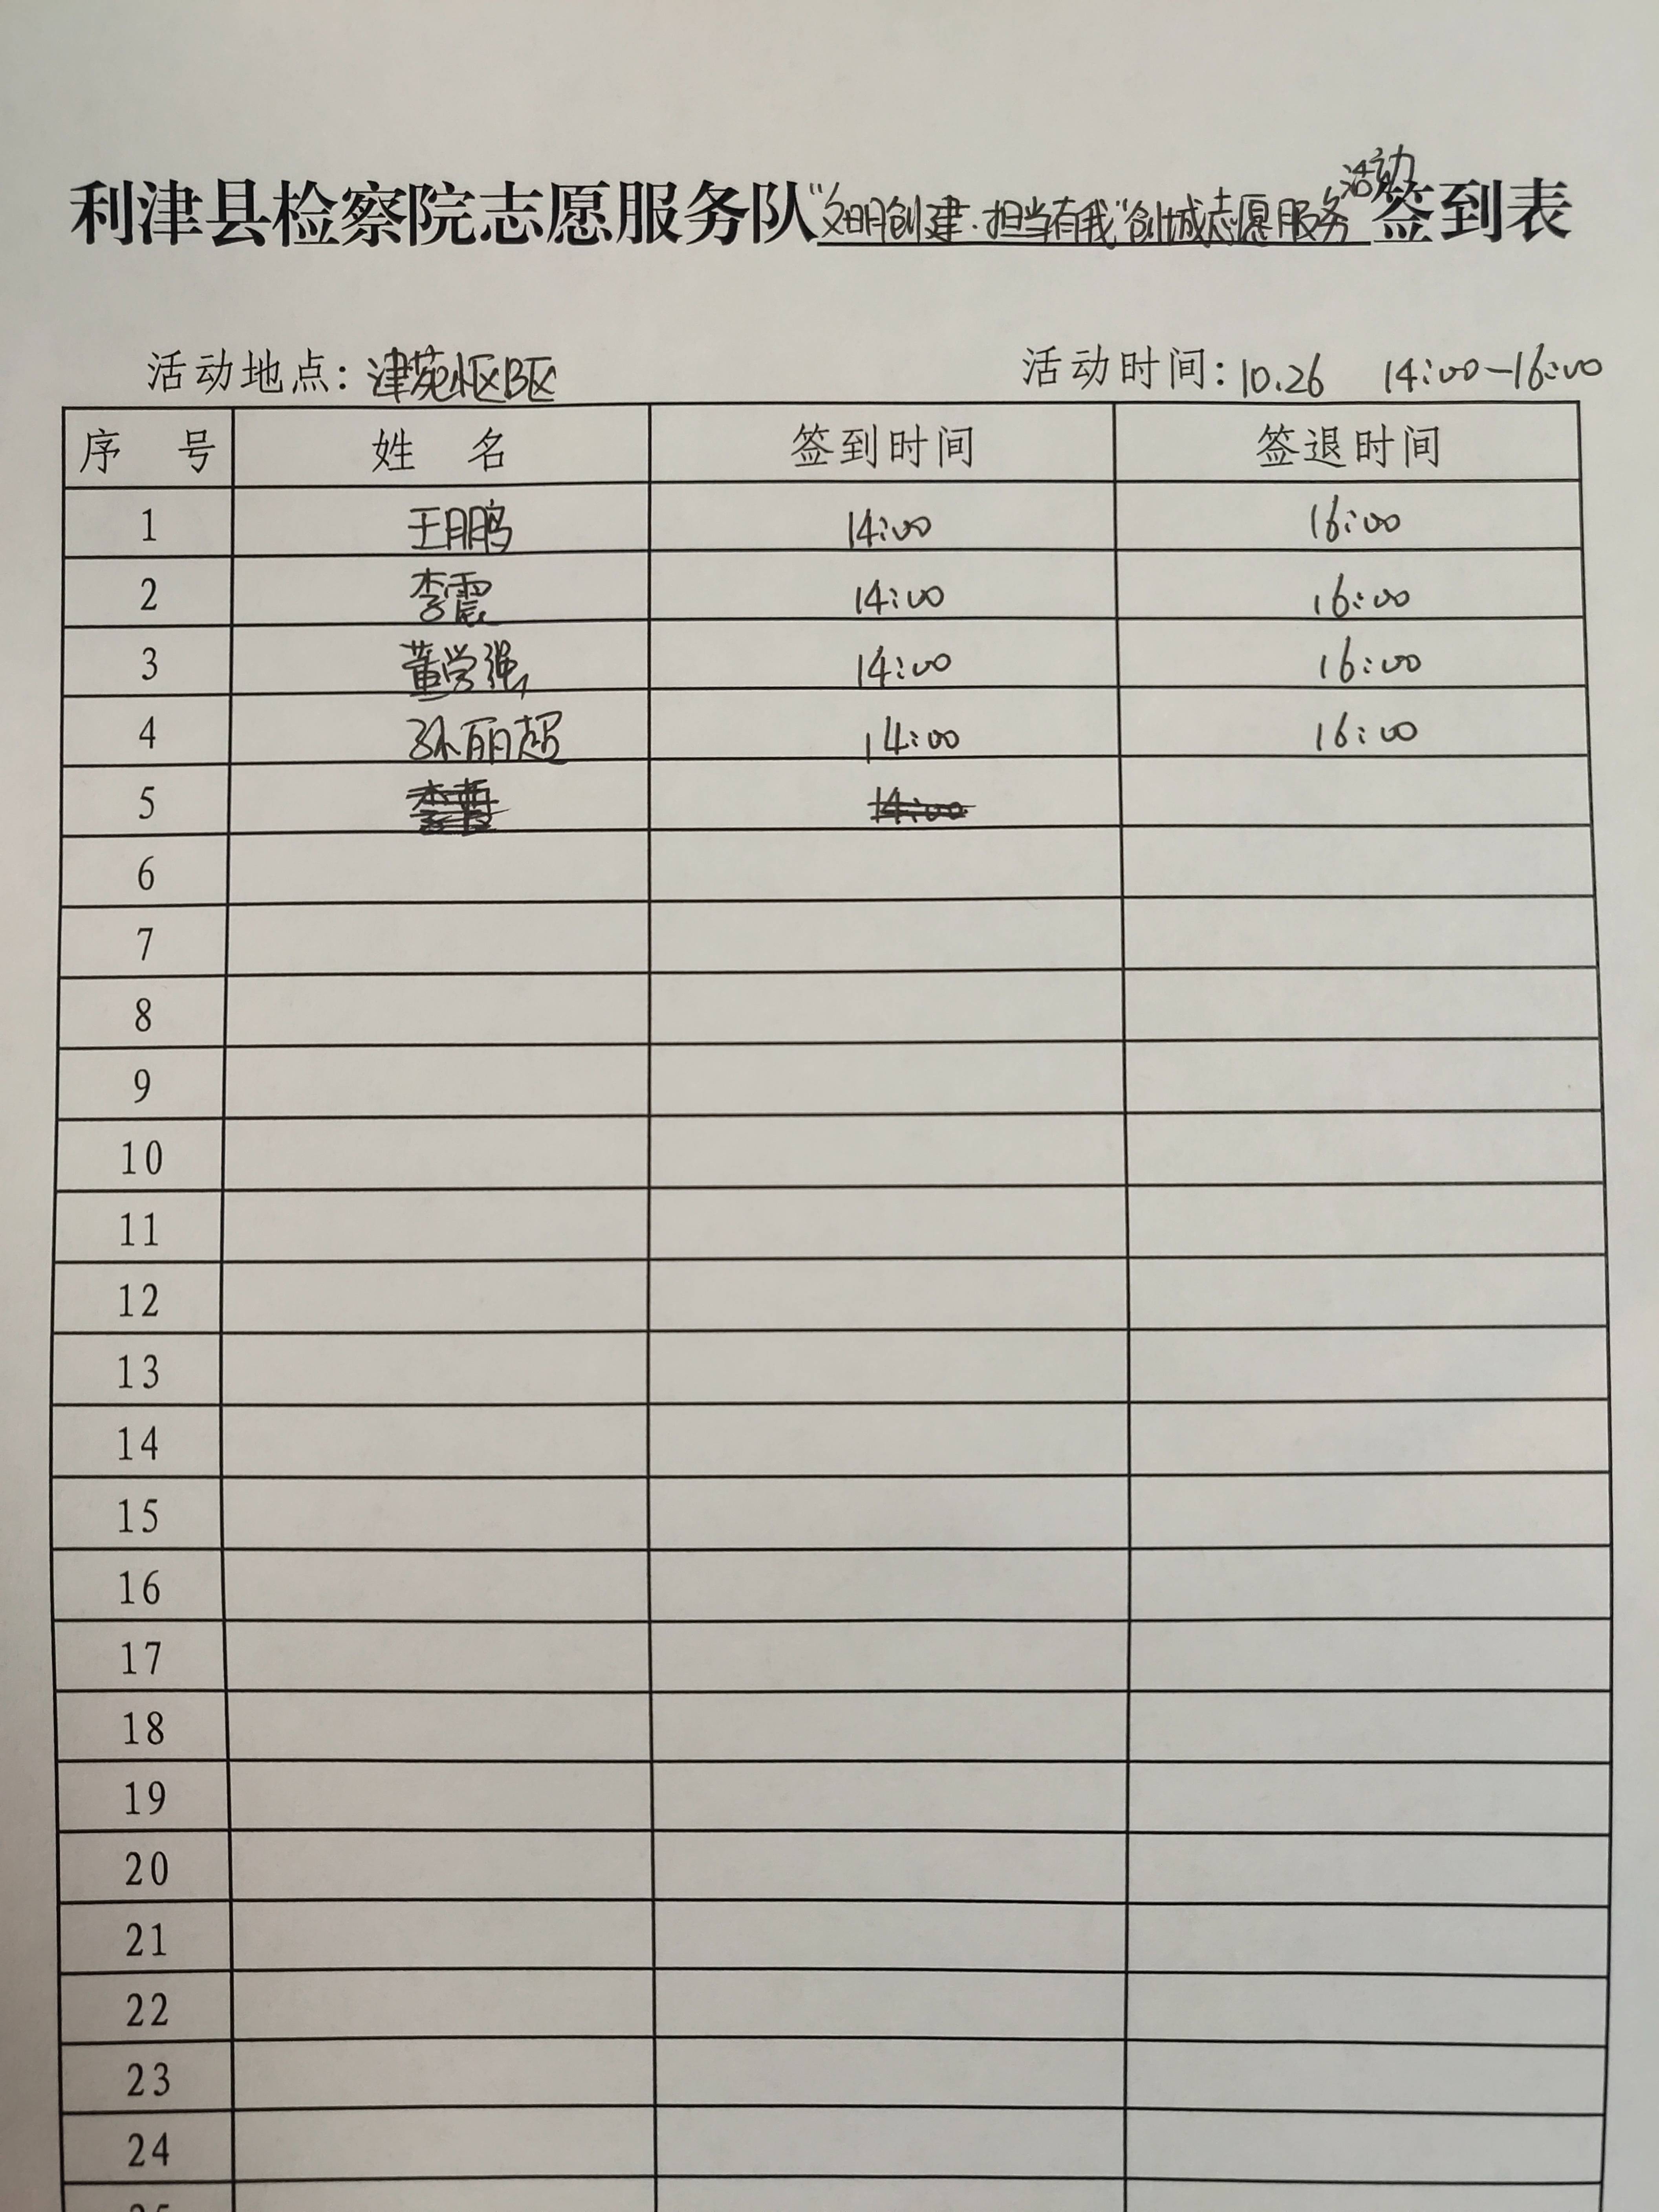 利津县检察院志愿服务队“文明创建·担当有我”创城志愿服务活动签到表
活动地点：津苑小区B区 活动时间：10.26 14:00-16:00
序 号 姓 名 签到时间 签退时间
1 王鹏 14:00 16:00
2 李震 14:00 16:00
3 董学强 14:00 16:00
4 孙丽超 14:00 16:00
5 14:00
6
7
8
9
10
11
12
13
14
15
16
17
18
19
20
21
22
23
24